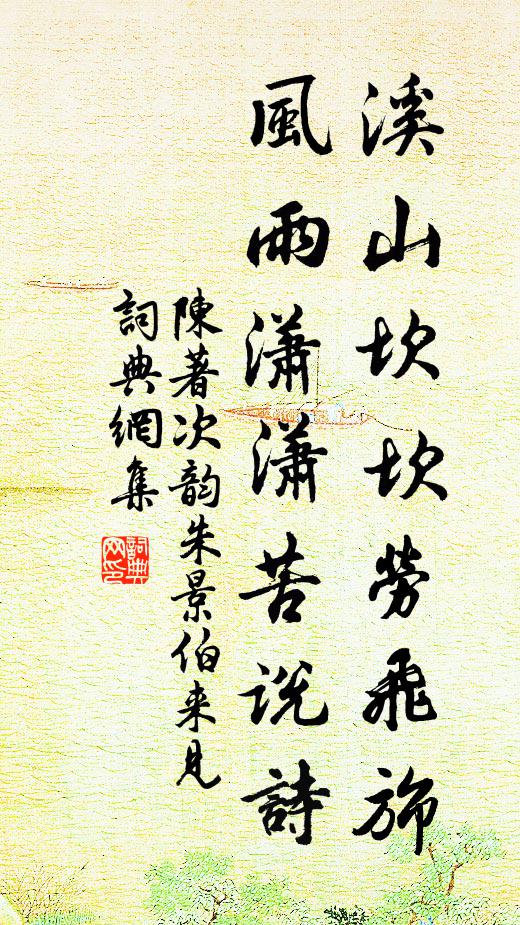 溪山坎坎勞飛旆
風雨瀟瀟苦說詩
陳著次韵朱景伯来見
詞典網集
詞典网印